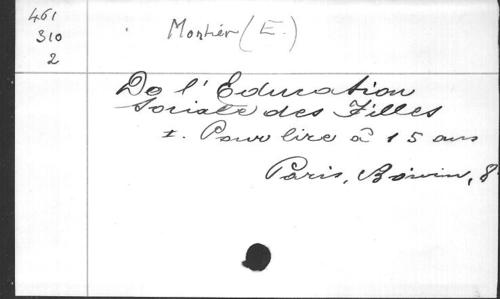 461
310
2
Montier (E.)
De l'Education
Sociale des Filles
I. Pour lire à 15 ans
Paris, Boivin, 8°